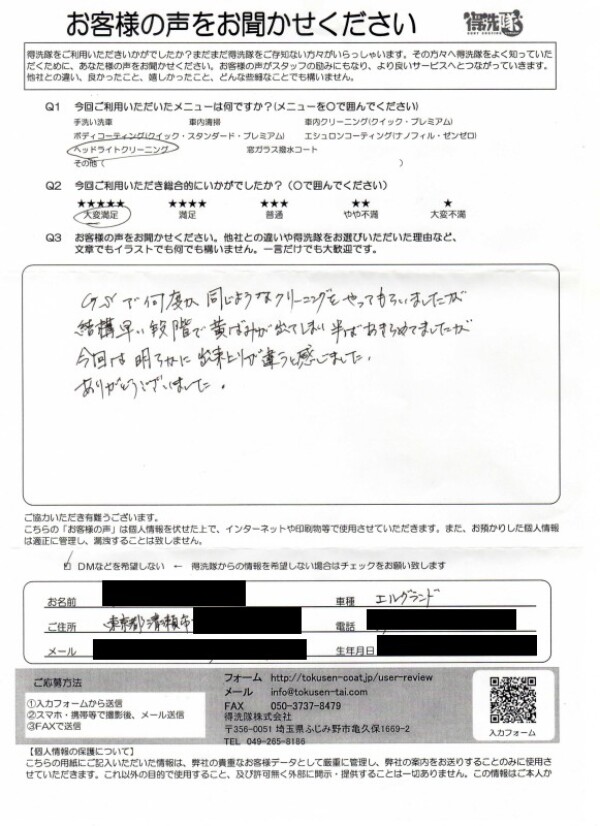 お客様の声をお聞かせください
得洗隊
得洗隊をご利用いただきいかがでしたか？まだまだ得洗隊をご存知ない方々がいらっしゃいます。その方々へ得洗隊をよく知っていた
だくために、あなた様の声をお聞かせください。お客様の声がスタッフの励みにもなり、より良いサービスへとつながっていきます。
他社との違い、良かったこと、嬉しかったこと、どんな些細なことでも構いません。
Q1 今回ご利用いただいたメニューは何ですか？(メニューを〇で囲んでください)
手洗い洗車 車内清掃 車内クリーニング(クイック・プレミアム)
ボディコーティング(クイック・スタンダード・プレミアム) エシュロンコーティング(ナノフィル・ゼンゼロ)
ヘッドライトクリーニング 窓ガラス撥水コート
その他 ( )
Q2 今回ご利用いただき総合的にいかがでしたか？（〇で囲んでください）
★★★★★ ★★★★ ★★★ ★★ ★
大変満足 満足 普通 やや不満 大変不満
Q3 お客様の声をお聞かせください。他社との違いや得洗隊をお選びいただいた理由など、
文章でもイラストでも何でも構いません。一言だけでも大歓迎です。
GSで何度か同じようなクリーニングをやってもらいましたが
結構早い段階で黄ばみが出てしまい半ばあきらめてましたが
今回は明らかに出来上りが違うと感じました。
ありがとうございました。
ご協力いただき有難うございます。
こちらの「お客様の声」は個人情報を伏せた上で、インターネットや印刷物等で使用させていただきます。また、お預かりした個人情報
は適正に管理し、漏洩することは致しません。
DMなどを希望しない ← 得洗隊からの情報を希望しない場合はチェックをお願い致します
お名前 車種 エルグランド
ご住所 東京都清瀬市 電話
メール 生年月日
ご応募方法
①入力フォームから送信
②スマホ・携帯等で撮影後、メール送信
③FAXで送信
フォーム http://tokusen-coat.jp/user-review
メール info@tokusen-tai.com
FAX 050-3737-8479
得洗隊株式会社
〒356-0051 埼玉県ふじみ野市亀久保1669-2
TEL 049-265-8186
入力フォーム
【個人情報の保護について】
こちらの用紙にご記入いただいた情報は、弊社の貴重なお客様データとして厳重に管理し、弊社の案内をお送りすることのみに使用さ
せていただきます。これ以外の目的で使用すること、及び許可無く外部に開示・提供することは一切ありません。この情報はご本人か